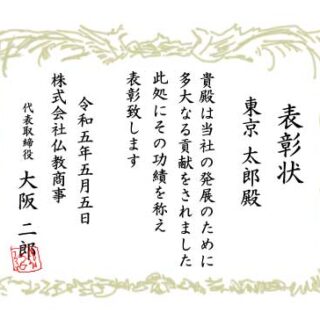 表彰状
東京 太郎殿
貴殿は当社の発展のために
多大なる貢献をされました
此処にその功績を称え
表彰致します
令和五年五月五日
株式会社仏教商事
代表取締役 大阪 二郎